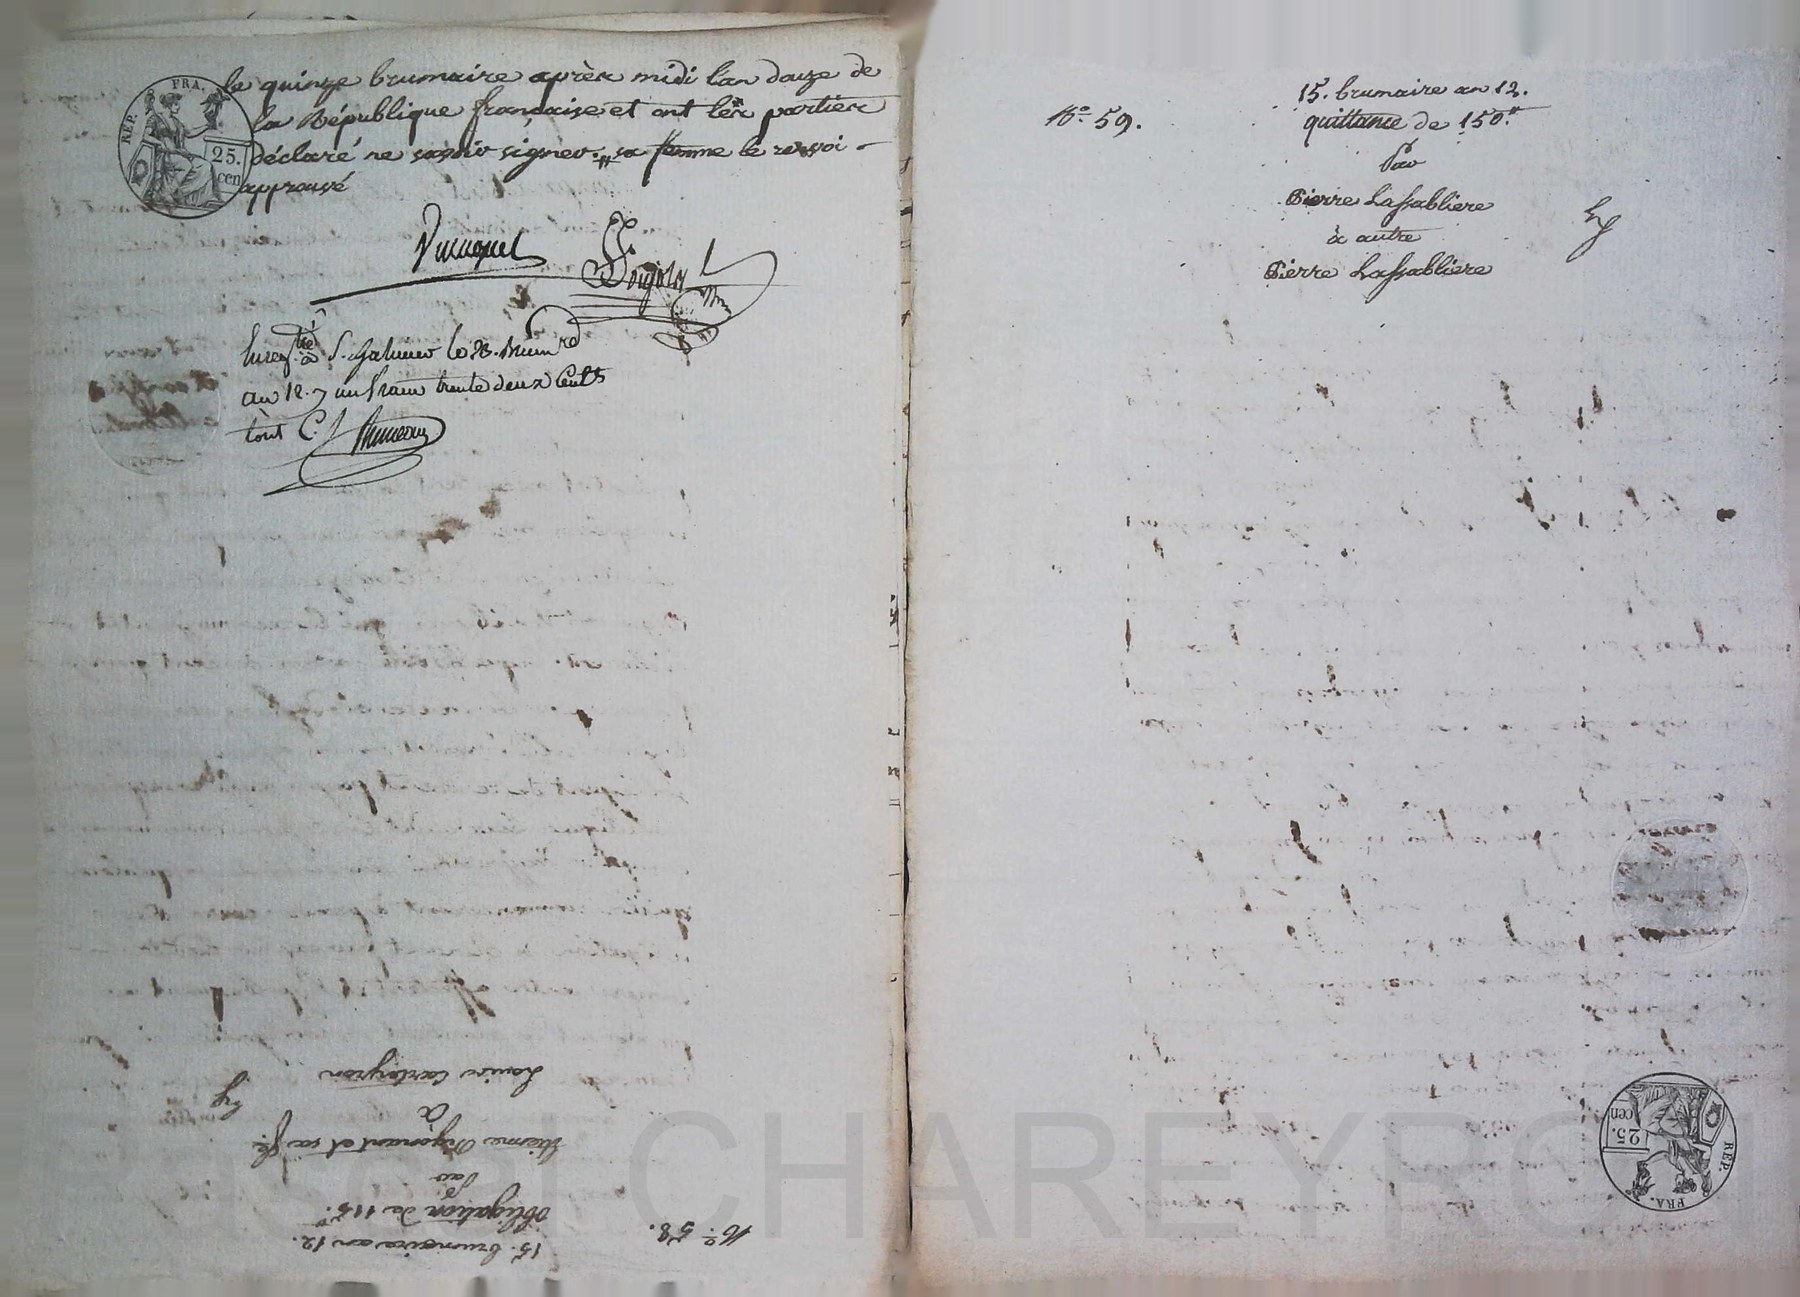 le quinze brumaire après midi l'an douze de
la République française et ont les parties
déclaré ne savoir signer. sa femme le renvoi
approuvé
REP. FRA.
25.
cen
Enreg.tré à S. Galmier le 28. brum
an 12. un franc trente deux cent.s
15. brumaire an 12.
obligation de 115.
Par
Etienne et sa fe.
à
Louis Carteyron
No. 58.
No. 59.
15. brumaire an 12.
quittance de 150.
Par
Pierre Lassabliere
à autre
Pierre Lassabliere
REP. FRA.
25.
cen
CHAREYRON